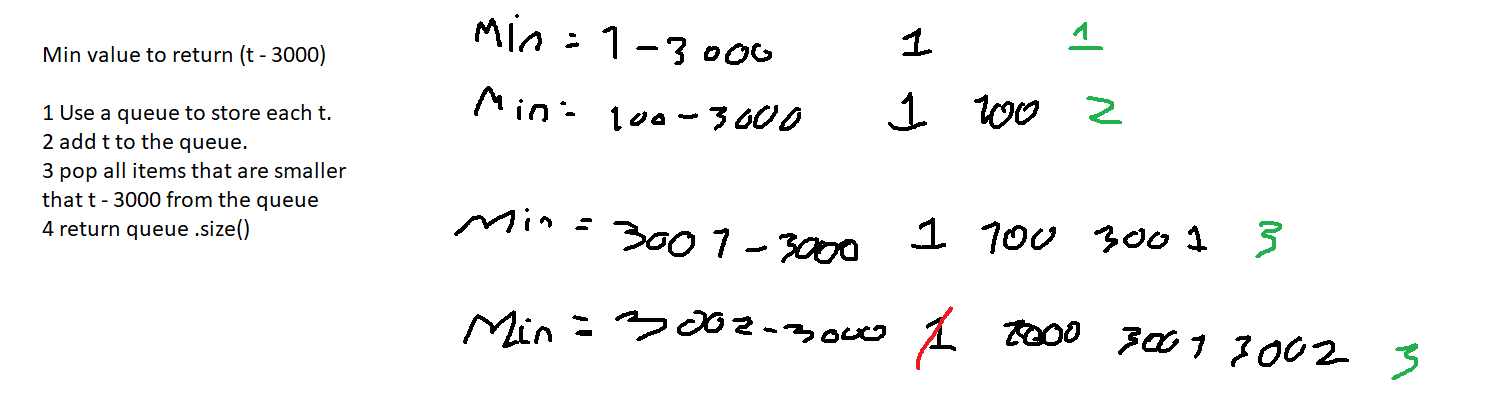 Min value to return (t - 3000)
1 Use a queue to store each t.
2 add t to the queue.
3 pop all items that are smaller
that t - 3000 from the queue
4 return queue .size()
Min = 1 - 3000 1 1
Min = 100 - 3000 1 100 2
Min = 3001 - 3000 1 100 3001 3
Min = 3002 - 3000 1 3001 3002 3